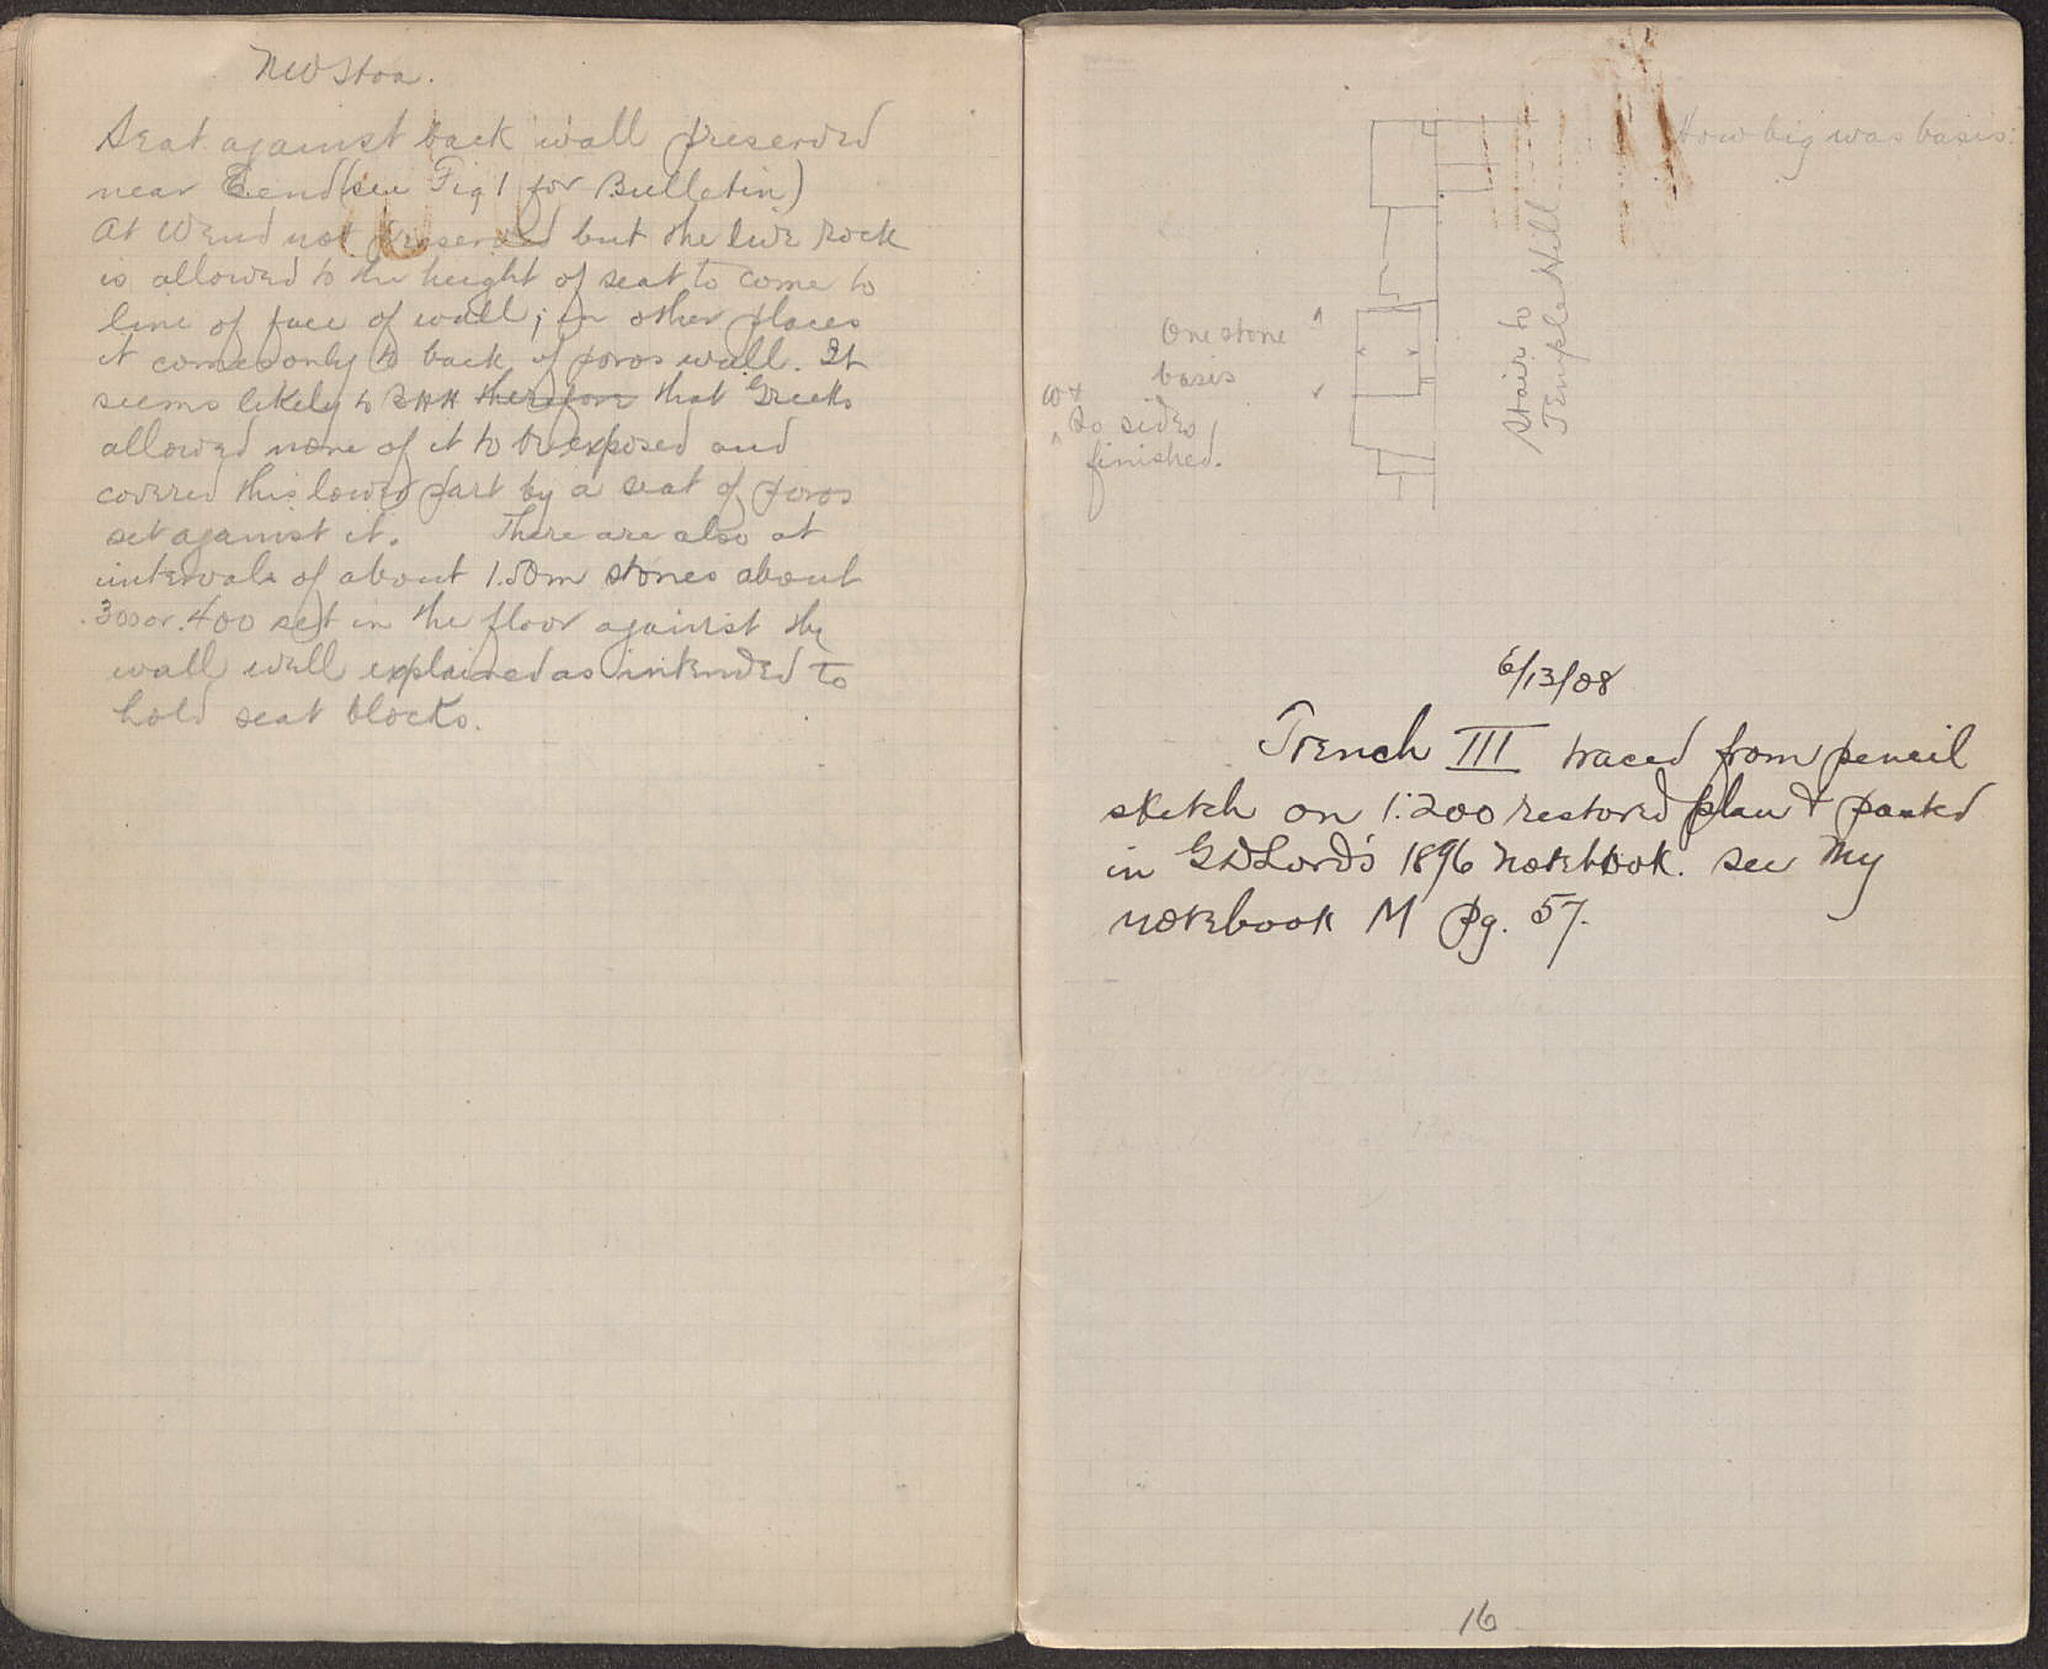 NW Stoa.
Seat against back wall preserved
near E end (see Fig 1 for Bulletin)
At W end not preserved but the live rock
is allowed to the height of seat to come to
line of face of wall; in other places
it comes only to back of poros wall. It
seems likely to therefore that Greeks
allowed none of it to be exposed and
covered this lower part by a seat of poros
set against it. There are also at
intervals of about 1.50m stones about
.300 or .400 set in the floor against the
wall well explained as intended to
hold seat blocks.
How big was basis:
One stone
basis
W +
So sides
finished.
Stair to
Temple Hill
6/13/08
Trench III traced from pencil
sketch on 1:200 restored plan & pasted
in G D Lord's 1896 notebook. see my
notebook M pg. 57.
16